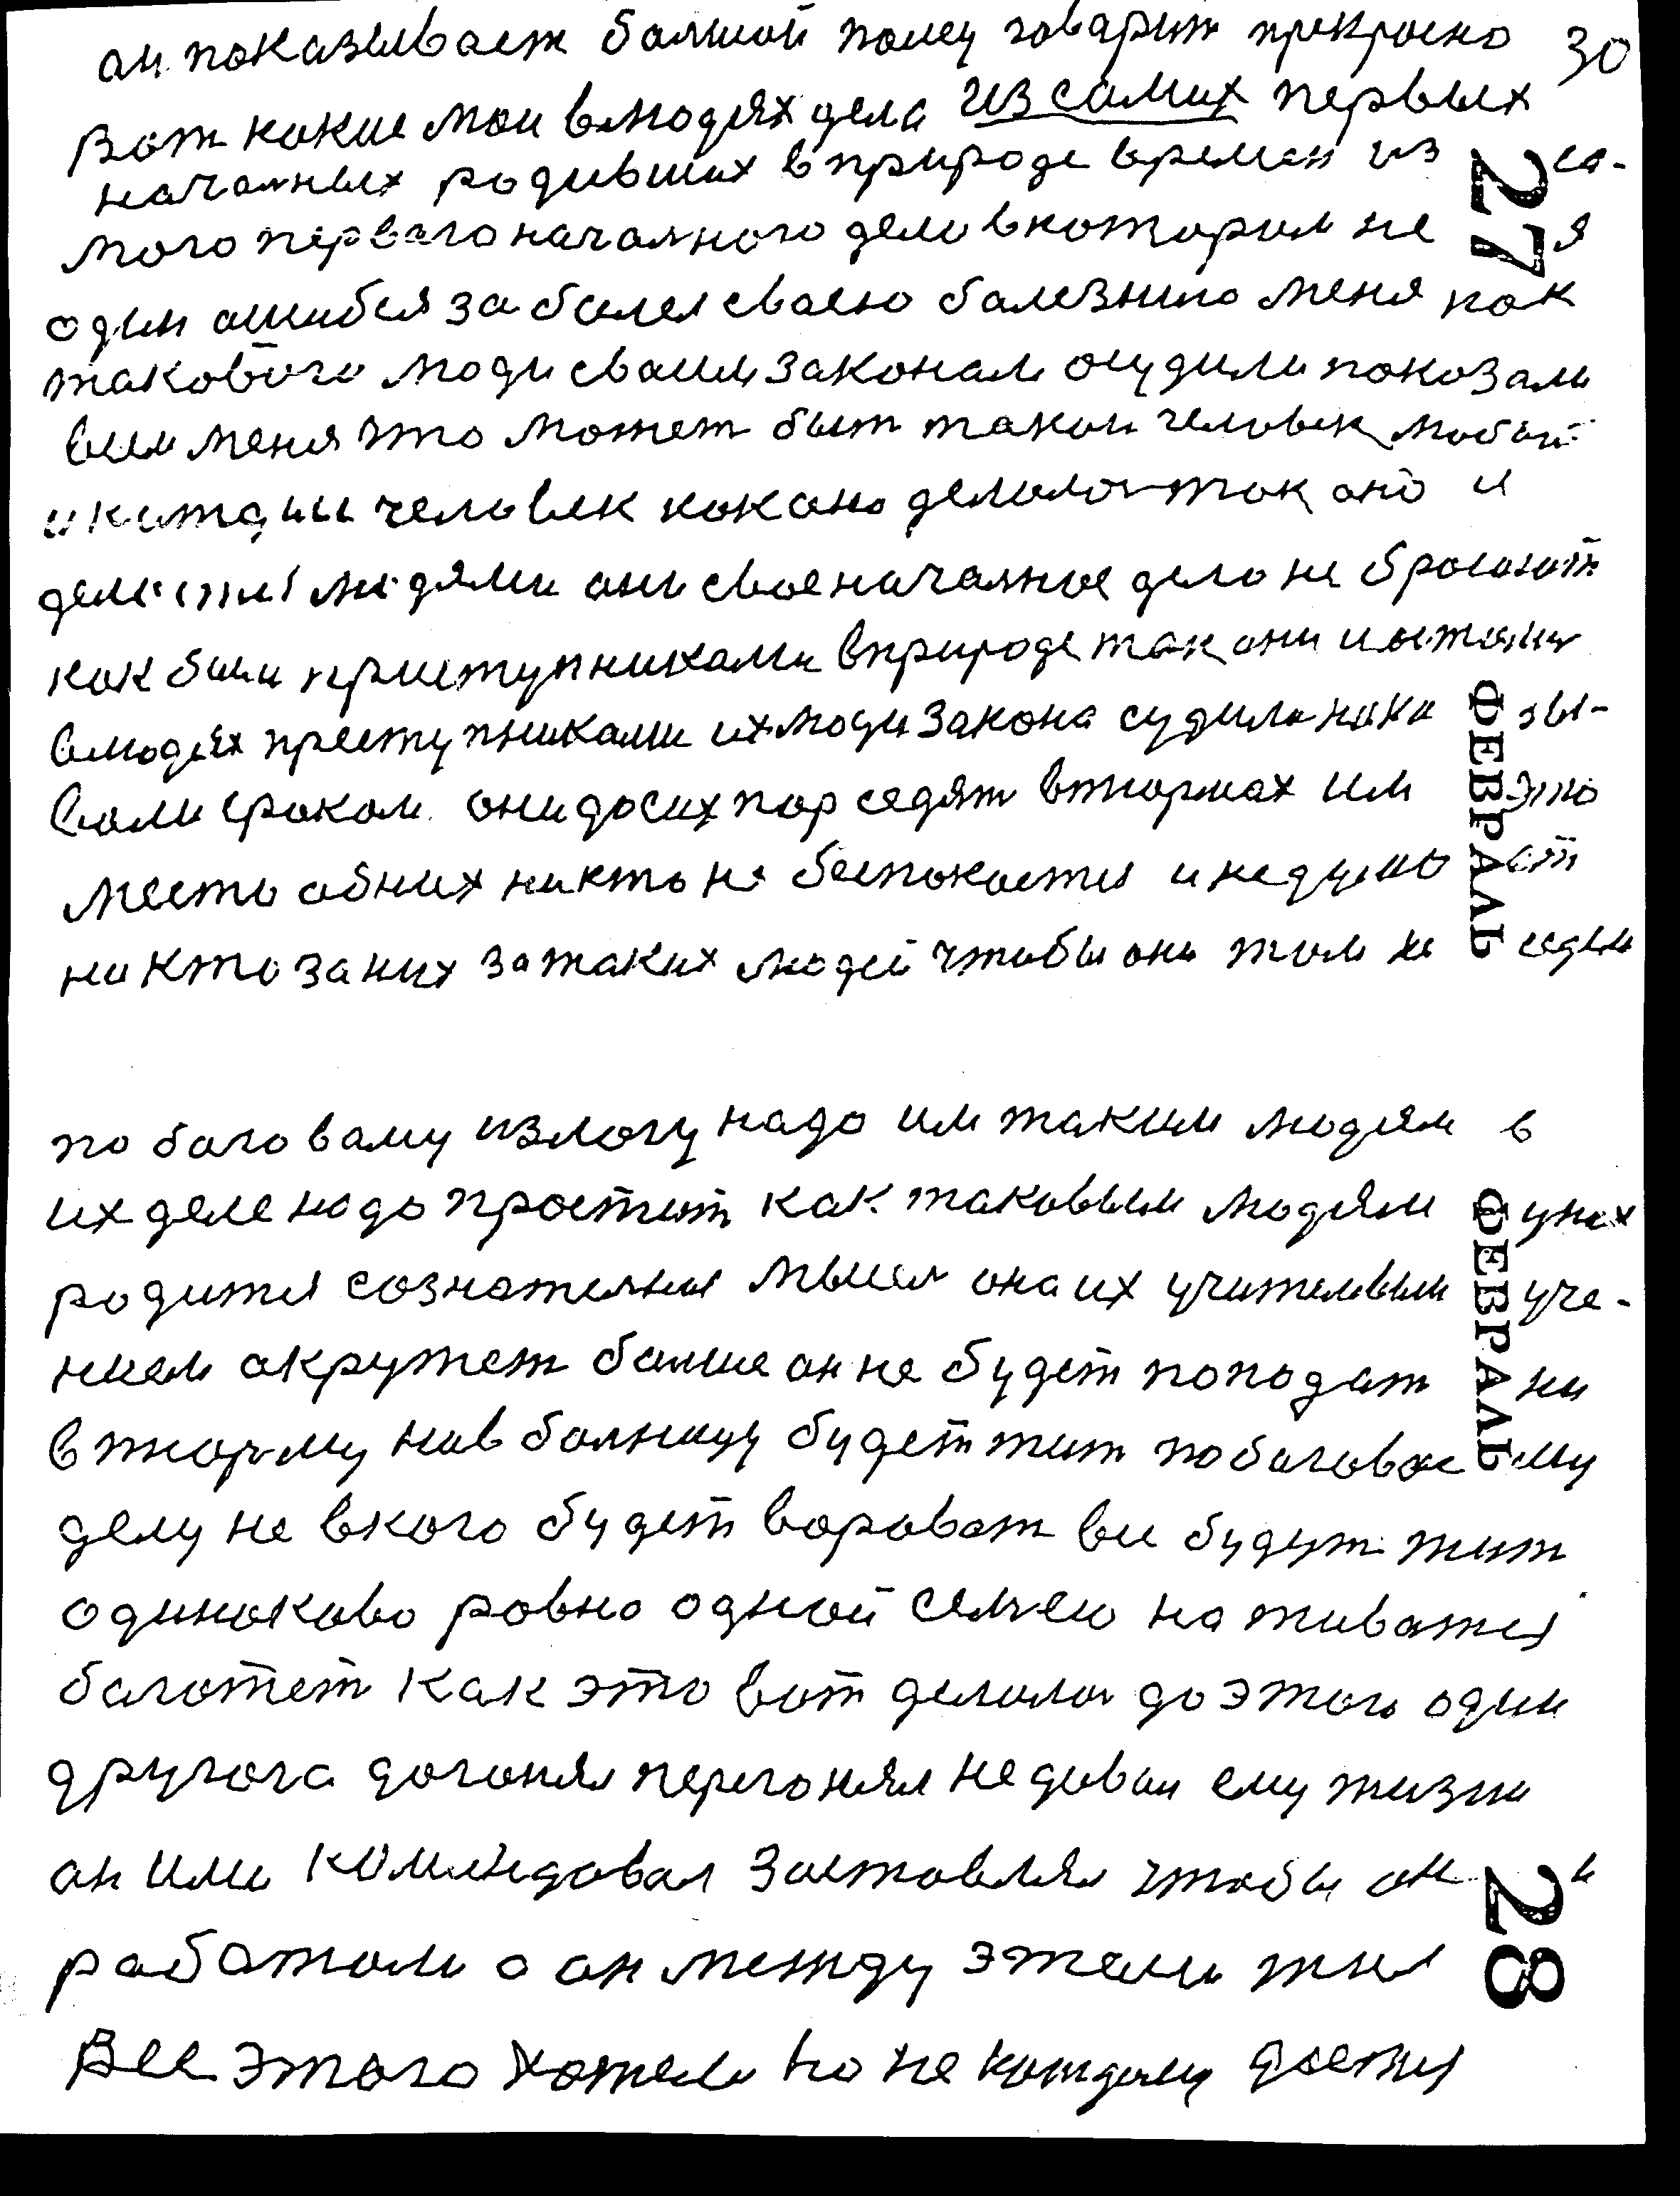 он показывает балшой палец говарит прекрасно 30
Вот какие мои влюдях дела из самих первых
началных родивших вприроде времен из са-
мого перваго началного дела вкотором не я
один ошибся заболел сваею балезнию меня как
такового люди сваим законам осудили показали
всем меня што может быт такой человек любой
и китаиц человек как оно делалос так оно и
делается людями они свое началное дело не бросают
как были приступниками вприроде так они и остались
влюдях преступниками их люди закона судили нака зы-
вали сроком они досих пор седят втюрмах им это
место обних никто не беспокоется и не дума ет
никто заних затаких людей чтобы они там не седели
по баговаму излогу надо им таким людям в
их деле надо простит как таковым людям у них
родится сознателная мысел она их учителевым уче-
нием акружет балше он не будет пoпoдат ни
в тюрму нив болницу будет жит побаговаску му
делу не вкого будет вороват все будут жит
одинаково ровно одной семъею наживатся
багатет как это вот делалос до этого один
другога догонял перегонял недовал ему жизни
он ими командовал заставлял чтобы они
работали а он между этими жил
Все этого хотели но не каждому дается
27
ФЕВРАЛЬ
ФЕВРАЛЬ
28